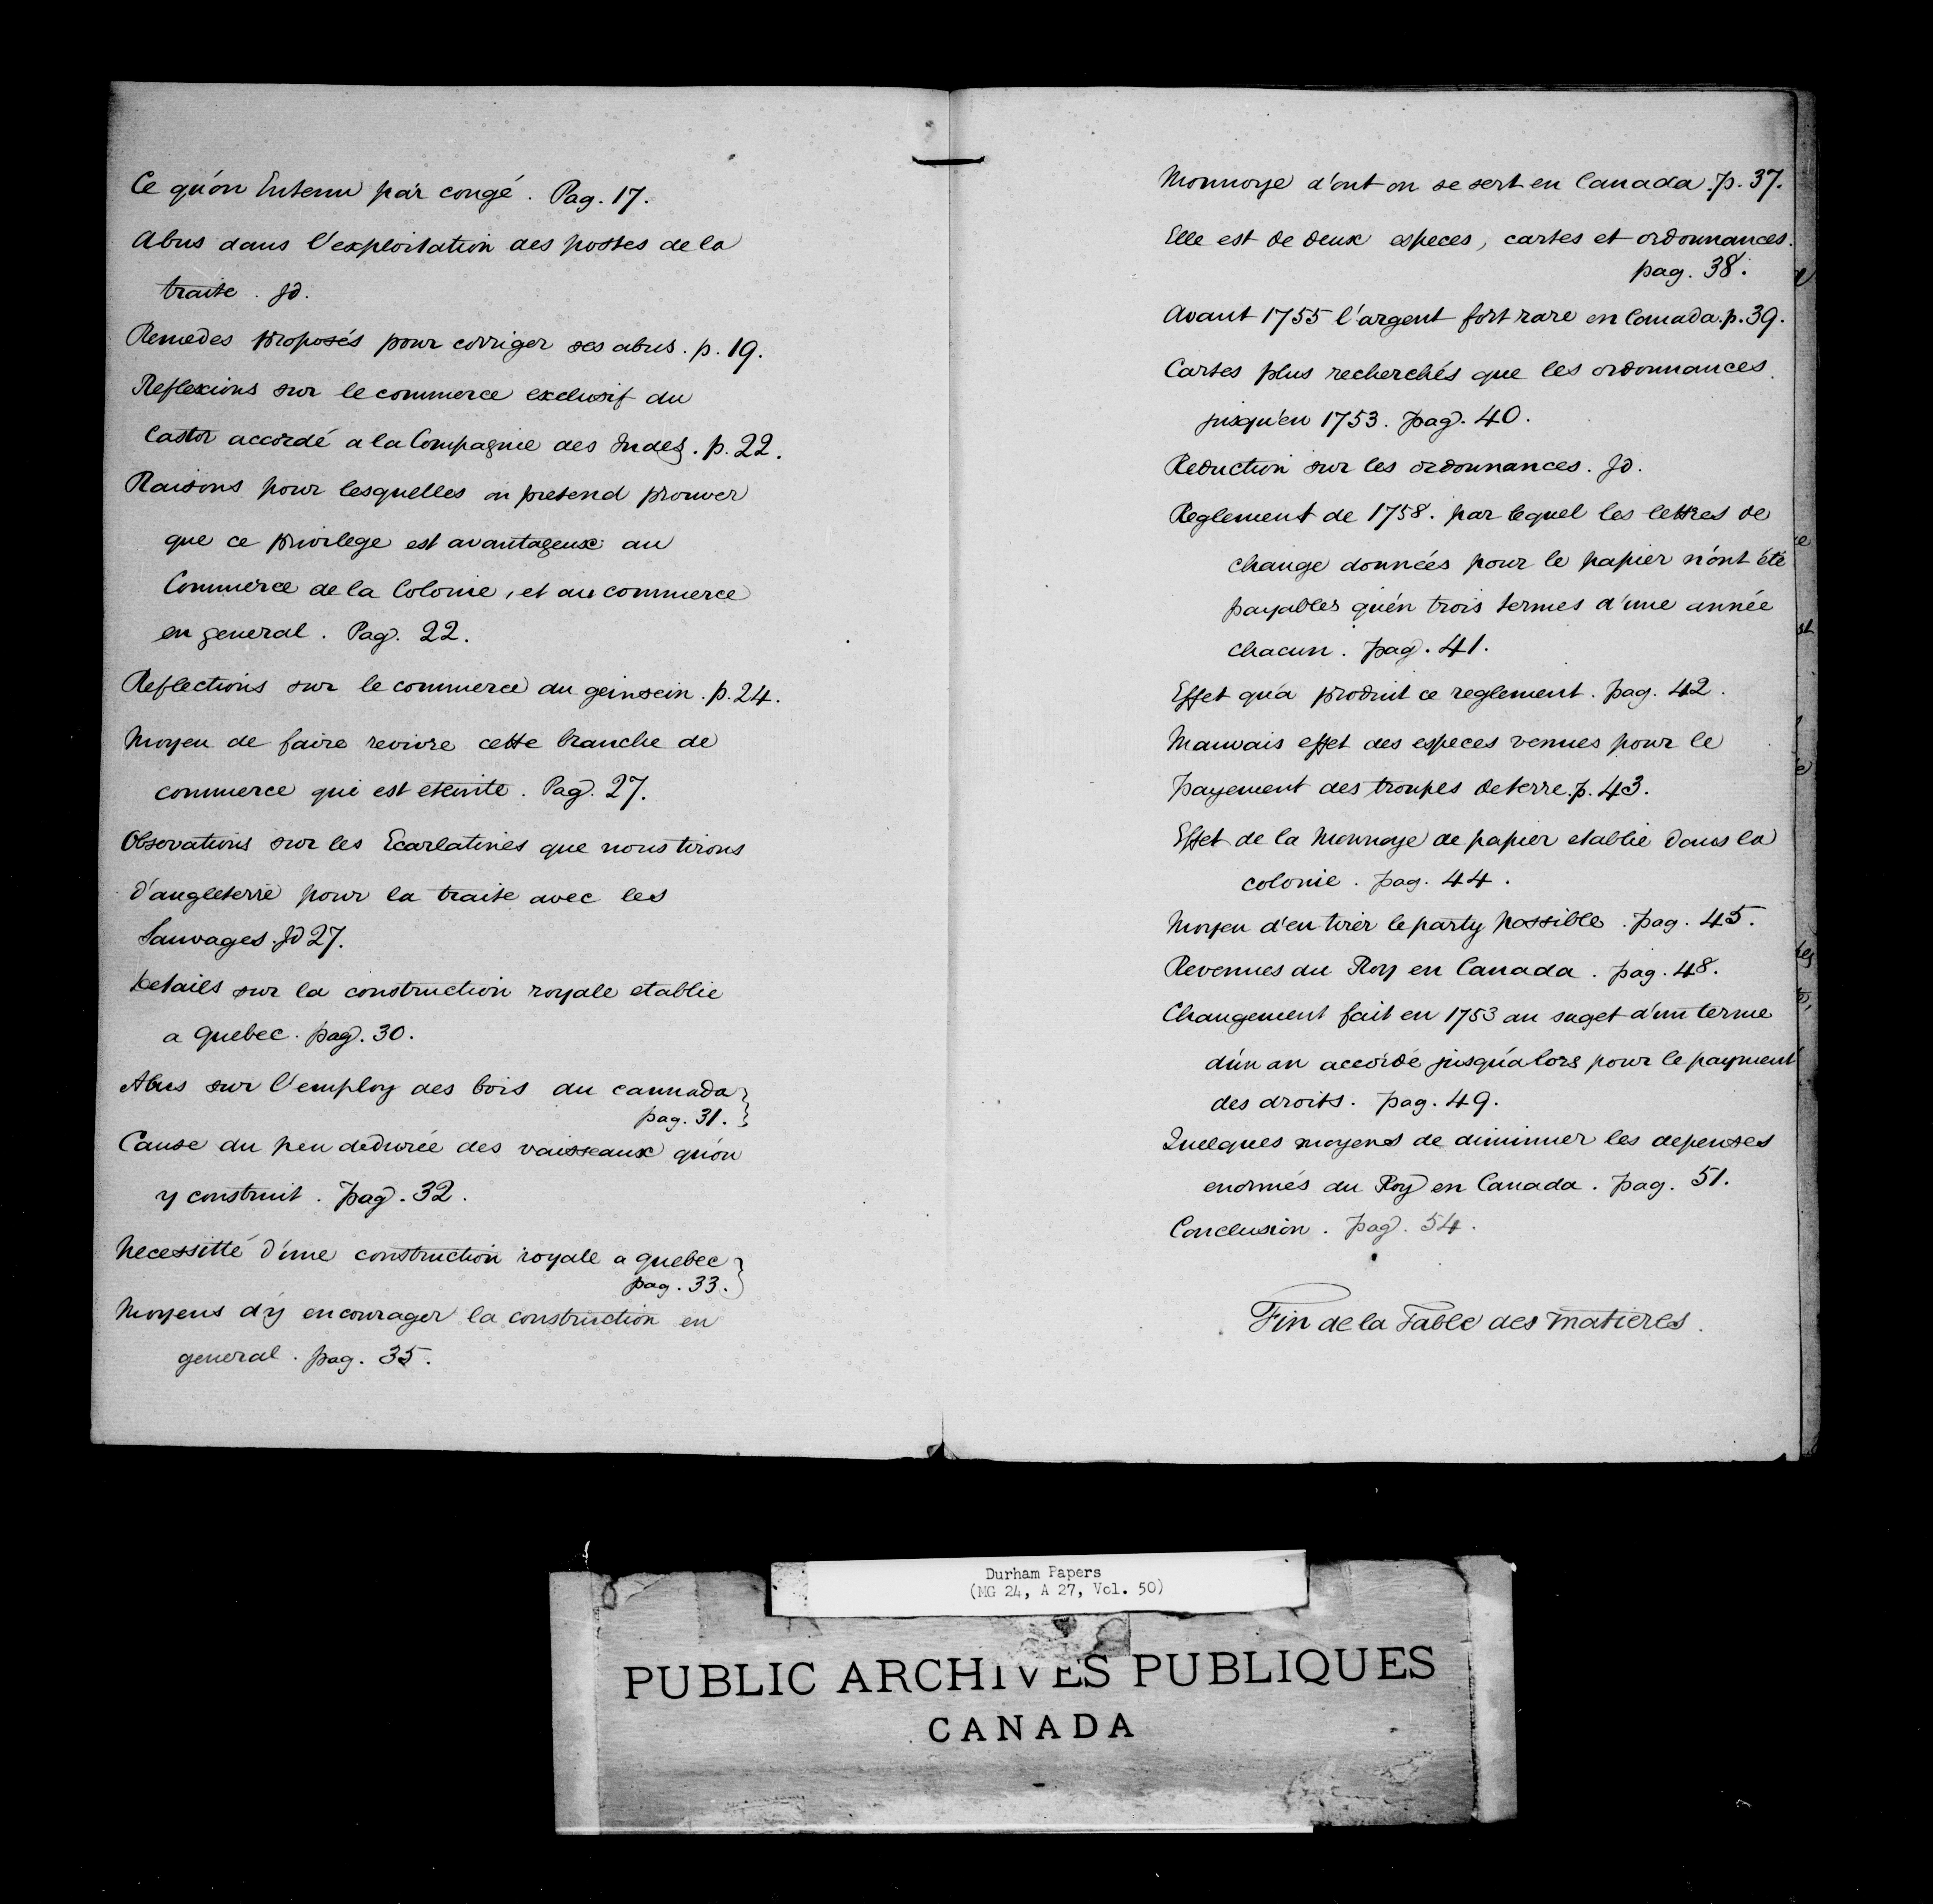 Ce qu'on Entenu par congé. Pag. 17.
Abus dans l'exploitation des postes de la
traite. Jd.
Remedes proposés pour corriger ses abus. p. 19.
Reflexions sur le commerce exclusif du
Castor accordé a la Compagnie des Indes. p. 22.
Raisons pour lesquelles on pretend prouver
que ce privilege est avantageux au
Commerce de la Colonie, et au commerce
en general. Pag. 22.
Reflections sur le commerce du geinsein. p. 24.
Moyen de faire revivre cette branche de
commerce qui est eteinte. Pag. 27.
Observations sur les Ecarlatines que nous tirons
d'angleterre pour la traite avec les
Sauvages. Jd 27.
Details sur la construction royale etablie
a Quebec. pag. 30.
Abus sur l'employ des bois du cannada
pag. 31.
Cause du peu dedurée des vaisseaux qu'on
y construit. pag. 32.
Necessitté d'une construction royale a quebec
pag. 33.
Moyens d'y encourager la construction en
general. pag. 35.
Monnoye d'ont on se sert en Canada. p. 37.
Elle est de deux especes, cartes et ordonnances.
pag. 38.
Avant 1755 l'argent fort rare en Canada. p. 39.
Cartes plus recherchés que les ordonnances
jusqu'en 1753. pag. 40.
Reduction sur les ordonnances. Jd.
Reglement de 1758. par lequel les lettres de
change données pour le papier n'ont été
payables qu'en trois termes d'une année
chacun. pag. 41.
Effet qu'a produit ce reglement. pag. 42.
Mauvais effet des especes venues pour le
payement des troupes de terre. p. 43.
Effet de la Monnoye de papier etablie dans la
colonie. pag. 44.
Moyen d'en tirer le party possible. pag. 45.
Revenues du Roy en Canada. pag. 48.
Changement fait en 1753 au suget d'un terme
d'un an accordé jusqu'alors pour le payment
des droits. pag. 49.
Quelques moyens de diminuer les depenses
enormés du Roy en Canada. pag. 51.
Conclusion. pag. 54.
Fin de la Table des matieres.
Durham Papers
(MG 24, A 27, Vol. 50)
PUBLIC ARCHIVES PUBLIQUES
CANADA